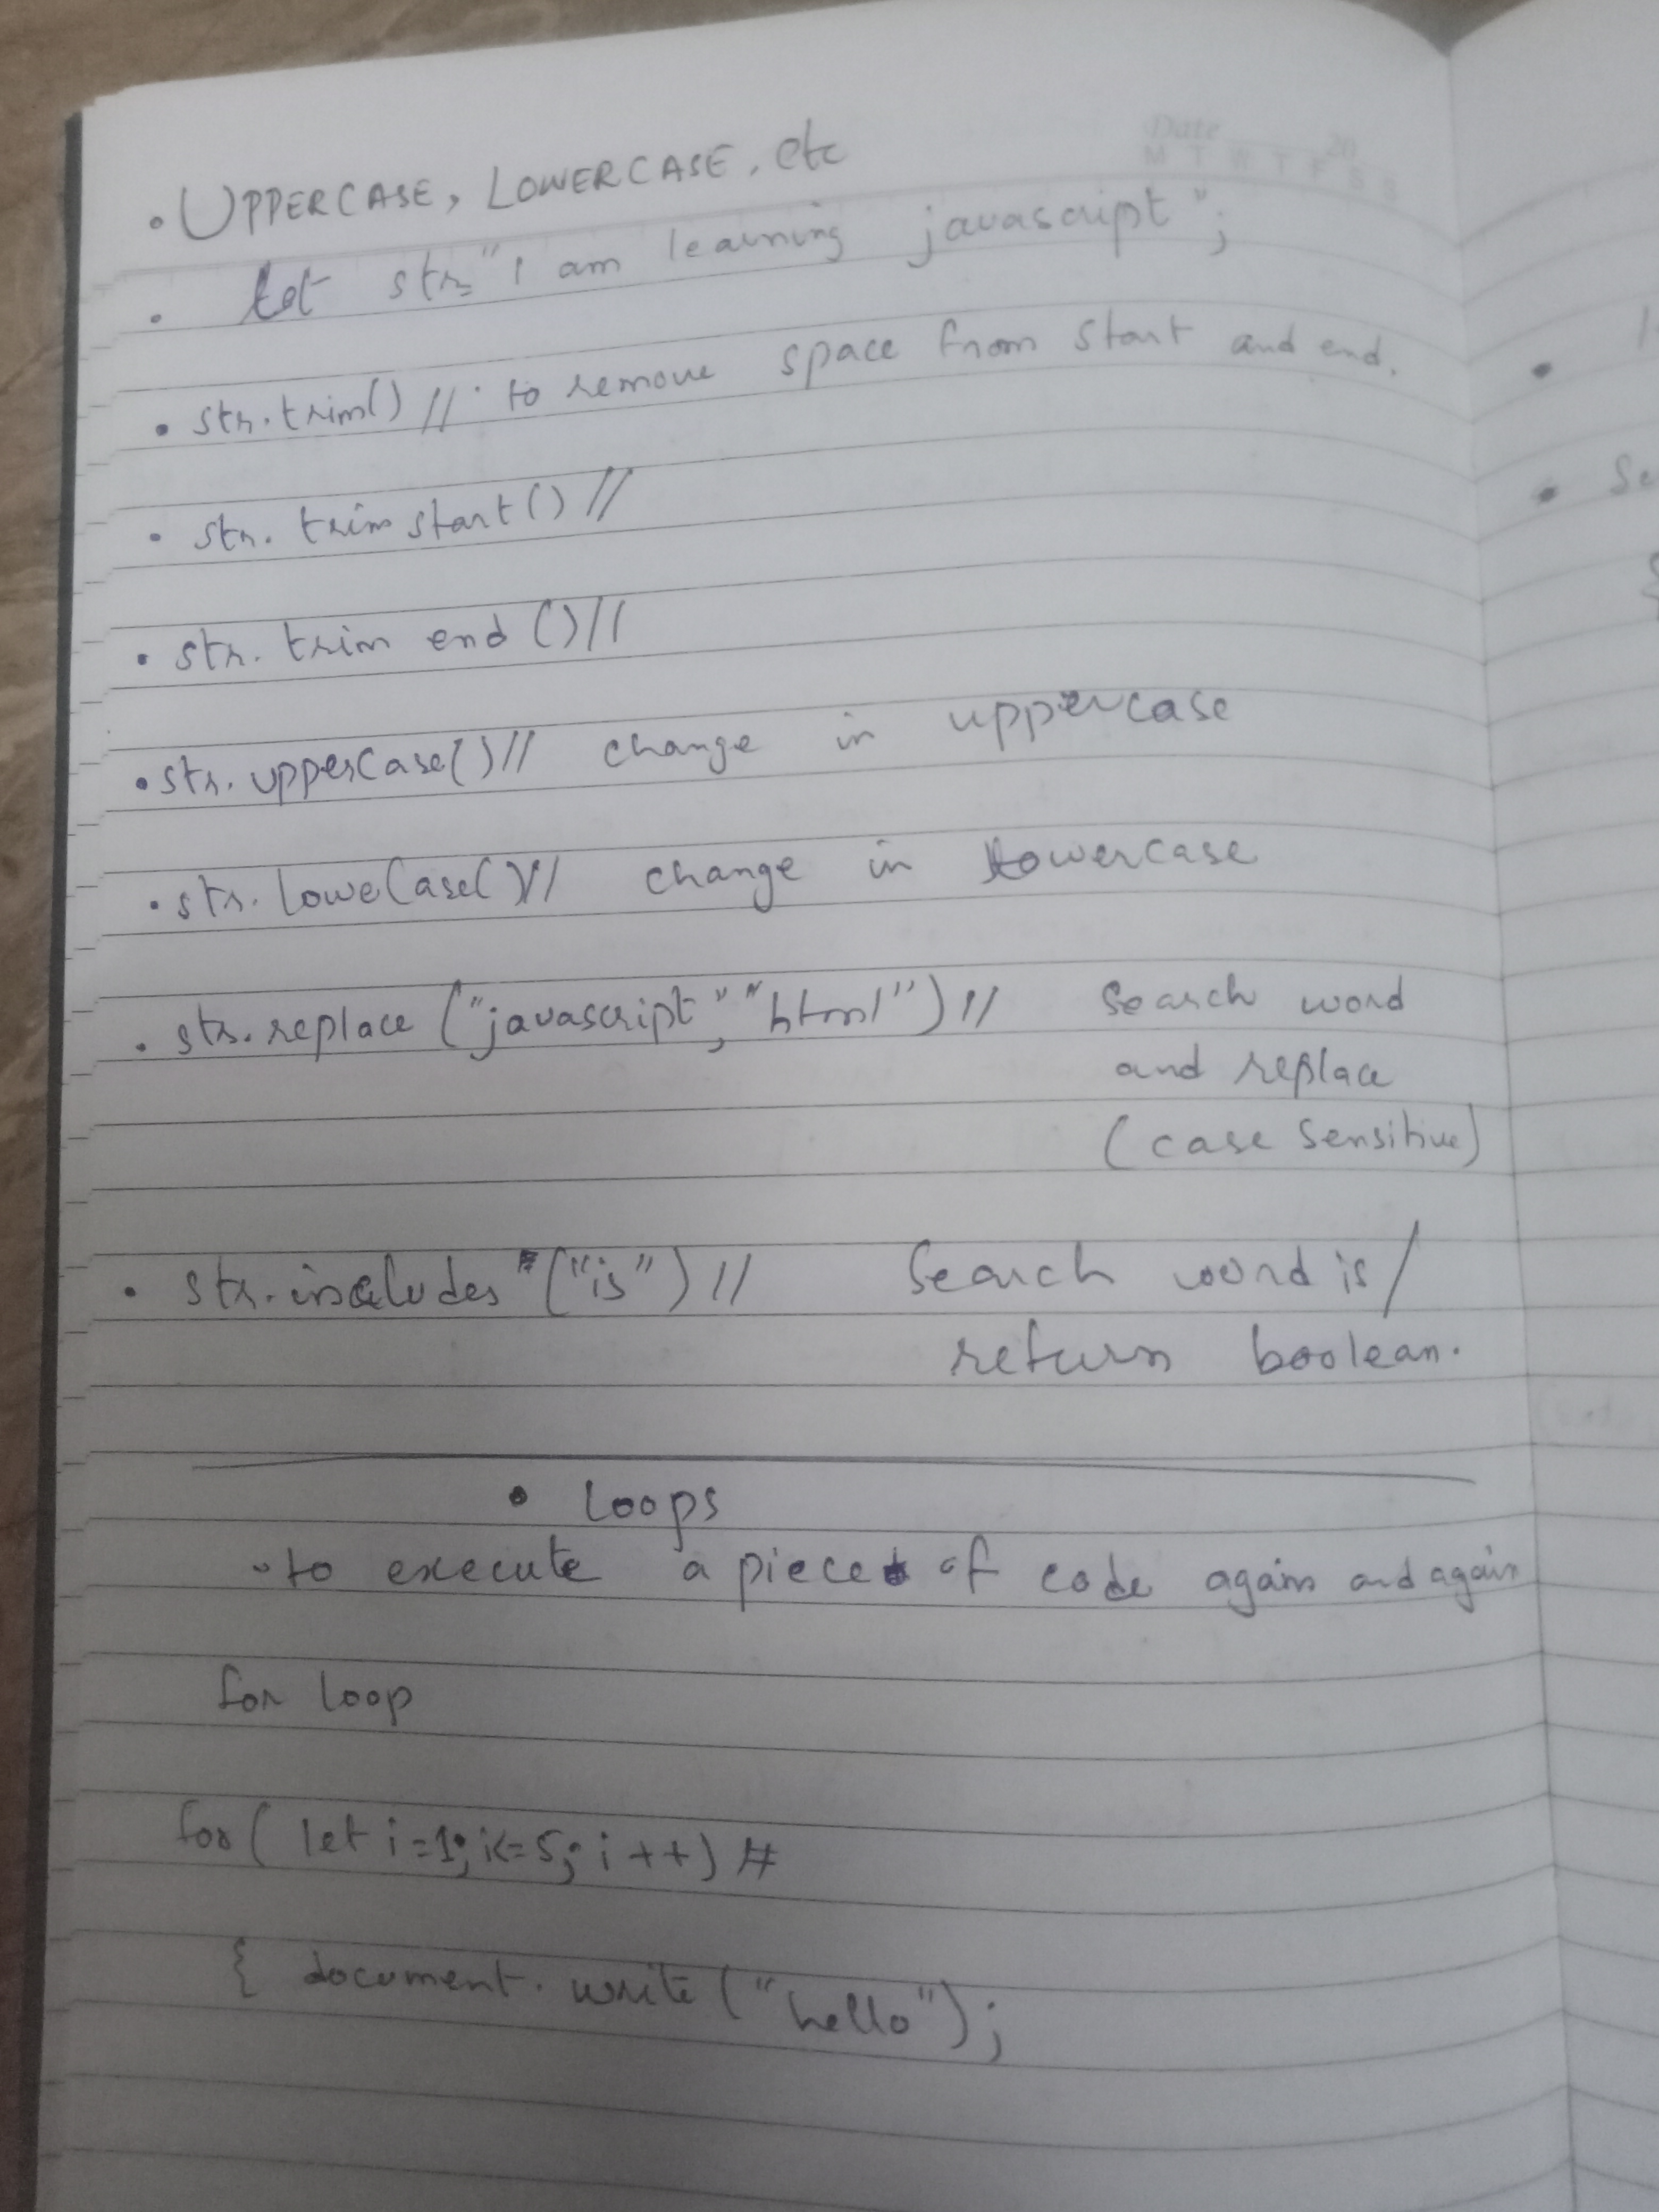 • UPPERCASE, LOWERCASE, etc
Date 20
M T W T F S S
• let str="I am learning javascript";
• str.trim() // to remove space from start and end.
• str. trim start() //
• str. trim end ()//
• str. upperCase()// change in uppercase
• str. loweCase()// change in lowercase
• str.replace ("javascript","html") // Search word
and replace
(case sensitive)
• str.includes ("is") // Search word is/
return boolean.
• Loops
• to execute a piece of code again and again
for loop
for( let i=1; i<=5; i++)
{ document. write ("hello");
• Se